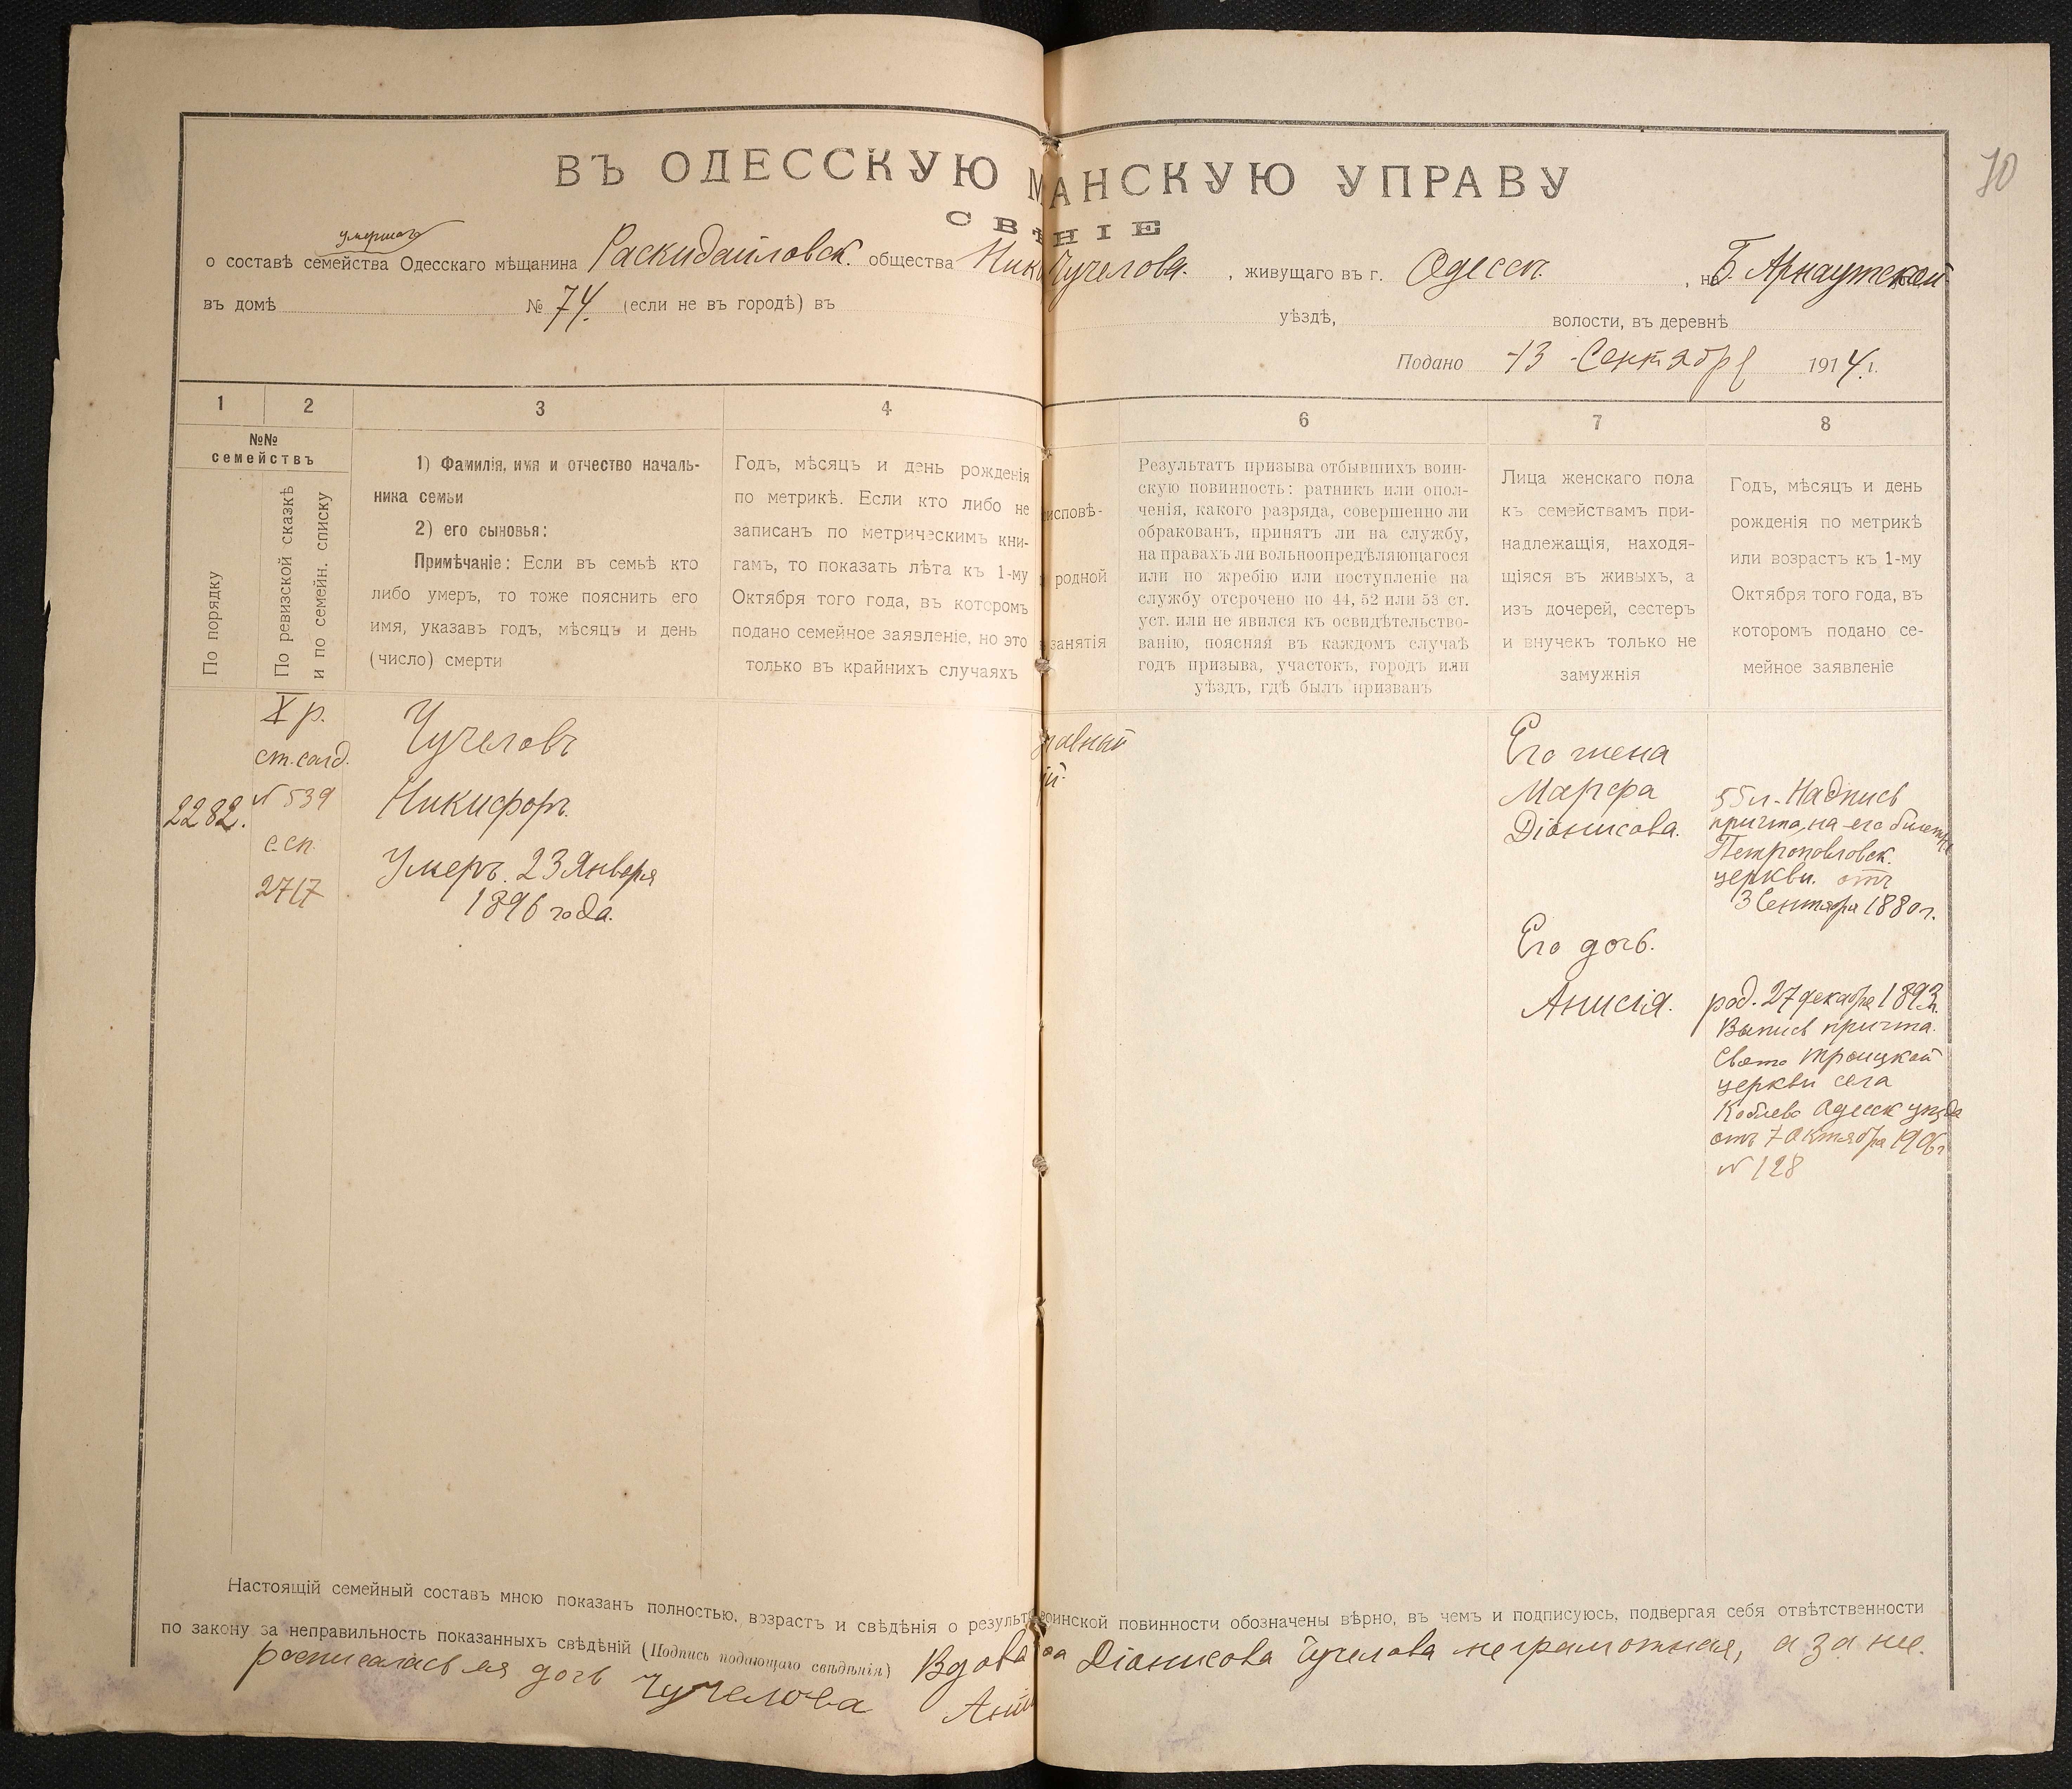 70
ВЪ ОДЕССКУЮ М АНСКУЮ УПРАВУ
СВѢ НІЕ
умершаго
о составѣ семейства Одесскаго мѣщанина Раскидайловск. общества Ник Чучелова. , живущаго въ г. Одессѣ. , на Б. Арнаутской
въ домѣ № 74. (если не въ городѣ) въ уѣздѣ, волости, въ деревнѣ
Подано 13 Сентября 1914 г.
1 2 3 4 6 7 8
№№
семействъ
По порядку
По ревизской сказкѣ
и по семейн. списку
1) Фамилія, имя и отчество началь-
ника семьи
2) его сыновья:
Примѣчаніе: Если въ семьѣ кто
либо умеръ, то тоже пояснить его
имя, указавъ годъ, мѣсяцъ и день
(число) смерти
Годъ, мѣсяцъ и день рожденія
по метрикѣ. Если кто либо не
записанъ по метрическимъ кни-
гамъ, то показать лѣта къ 1-му
Октября того года, въ которомъ
подано семейное заявленіе, но это
только въ крайнихъ случаяхъ
исповѣ-
родной
занятія
Результатъ призыва отбывшихъ воин-
скую повинность: ратникъ или опол-
ченія, какого разряда, совершенно ли
обракованъ, принятъ ли на службу,
на правахъ ли вольноопредѣляющагося
или по жребію или поступленіе на
службу отсрочено по 44, 52 или 53 ст.
уст. или не явился къ освидѣтельство-
ванію, поясняя въ каждомъ случаѣ
годъ призыва, участокъ, городъ или
уѣздъ, гдѣ былъ призванъ
Лица женскаго пола
къ семействамъ при-
надлежащія, находя-
щіяся въ живыхъ, а
изъ дочерей, сестеръ
и внучекъ только не
замужнія
Годъ, мѣсяцъ и день
рожденія по метрикѣ
или возрастъ къ 1-му
Октября того года, въ
которомъ подано се-
мейное заявленіе
2282.
X р.
ст. солд.
№ 539
с. сп.
2717
Чучеловъ
Никифоръ.
Умеръ. 23 Января
1896 года.
славный
ій.
Его жена
Марфа
Діонисова.
55 л. Надпись
причта, на его билетѣ
Петропавловск.
церкви. отъ
3 Сентября 1880 г.
Его дочь.
Анисія.
род. 27 декабря 1893 г.
Выпись причта.
Свято Троицкой
церкви села
Коблево Одесск уѣзда
отъ 7 Октября 1906 г
№ 128
Настоящій семейный составъ мною показанъ полностью, возрастъ и свѣдѣнія о результ воинской повинности обозначены вѣрно, въ чемъ и подписуюсь, подвергая себя отвѣтственности
по закону за неправильность показанныхъ свѣдѣній (Подпись подающаго свѣдѣнія) Вдова фа Діонисова Чучелова неграмотная, а за нее.
росписалась ея дочь Чучелова Ани